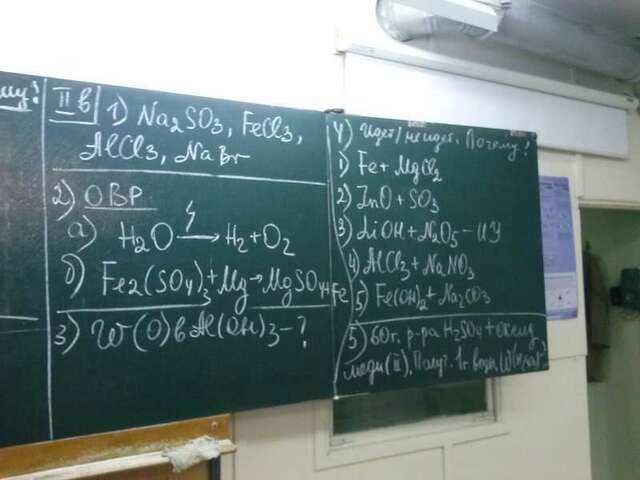 му?
II в
1) Na2SO3, FeCl3,
AlCl3, NaBr
2) ОВР
а) H2O → H2 + O2
б) Fe2(SO4)3 + Mg → MgSO4 + Fe
3) W(O) в Al(OH)3 - ?
4) Идет/не идет. Почему?
1) Fe + MgCl2
2) ZnO + SO3
3) LiOH + N2O5 - ИУ
4) AlCl3 + NaNO3
5) Fe(OH)2 + Na2CO3
5) 60г. р-ра H2SO4 + оксид
меди (II). Получ. 1г воды. W